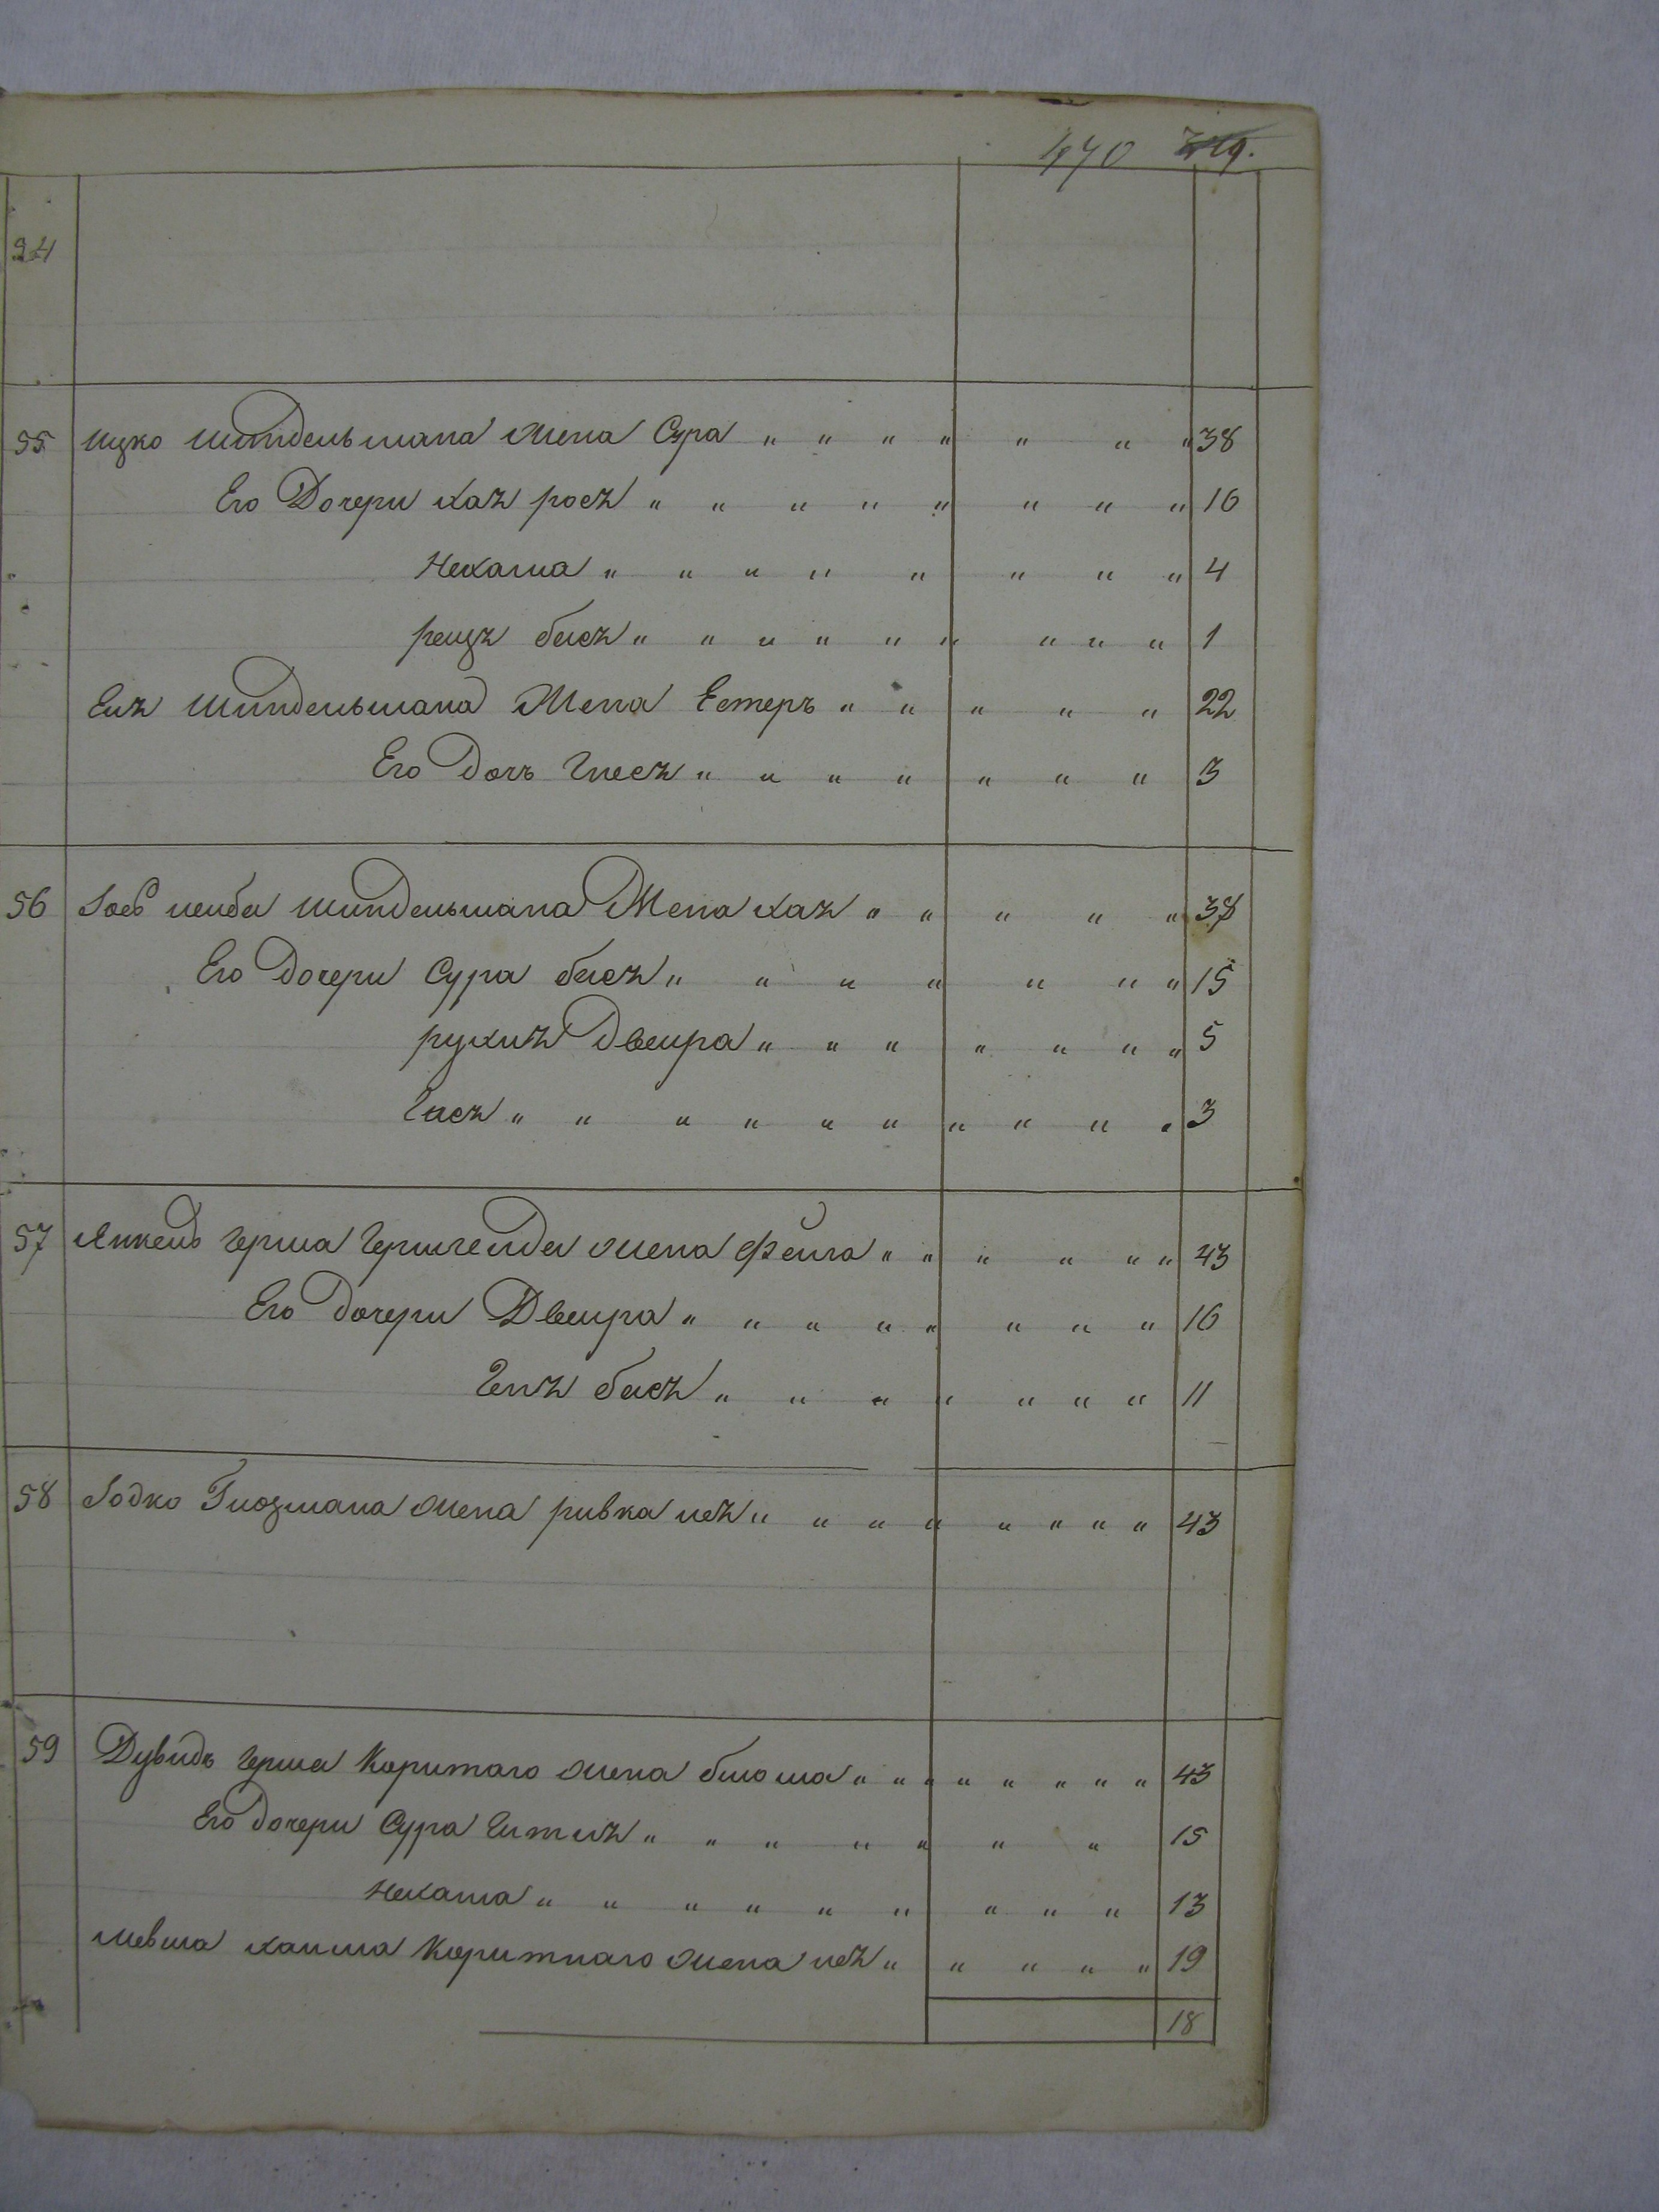 470
24
55 Ицко Шпидельмана жена Сура " " " " " " " 38
Его Дочери Хая рося " " " " " " " " 16
Нехама " " " " " " " " 4
рейзя бася " " " " " " " " " 1
Еля Шпидельмана Жена Естеръ " " " " " 22
Его Дочь Гнеся " " " " " " " 3
56 Лейба Шпидельмана Жена Хая " " " " " 38
Его Дочери Сура бася " " " " " " " 15
рухля Двейра " " " " " " " 5
Гася " " " " " " " " " " 3
57 Янкель Герша жена Фейга " " " " " " 43
Его дочери Двейра " " " " " " " " 16
Геня бася " " " " " " " " 11
58 Гиозмана жена ривка лея " " " " " " " " 43
59 Дувидъ Герша Коритаго жена блюма " " " " " " " " 43
Его дочери Сура Гитля " " " " " " " 15
Нехама " " " " " " " " " 13
хаима Коритнаго жена лея " " " " " 19
18